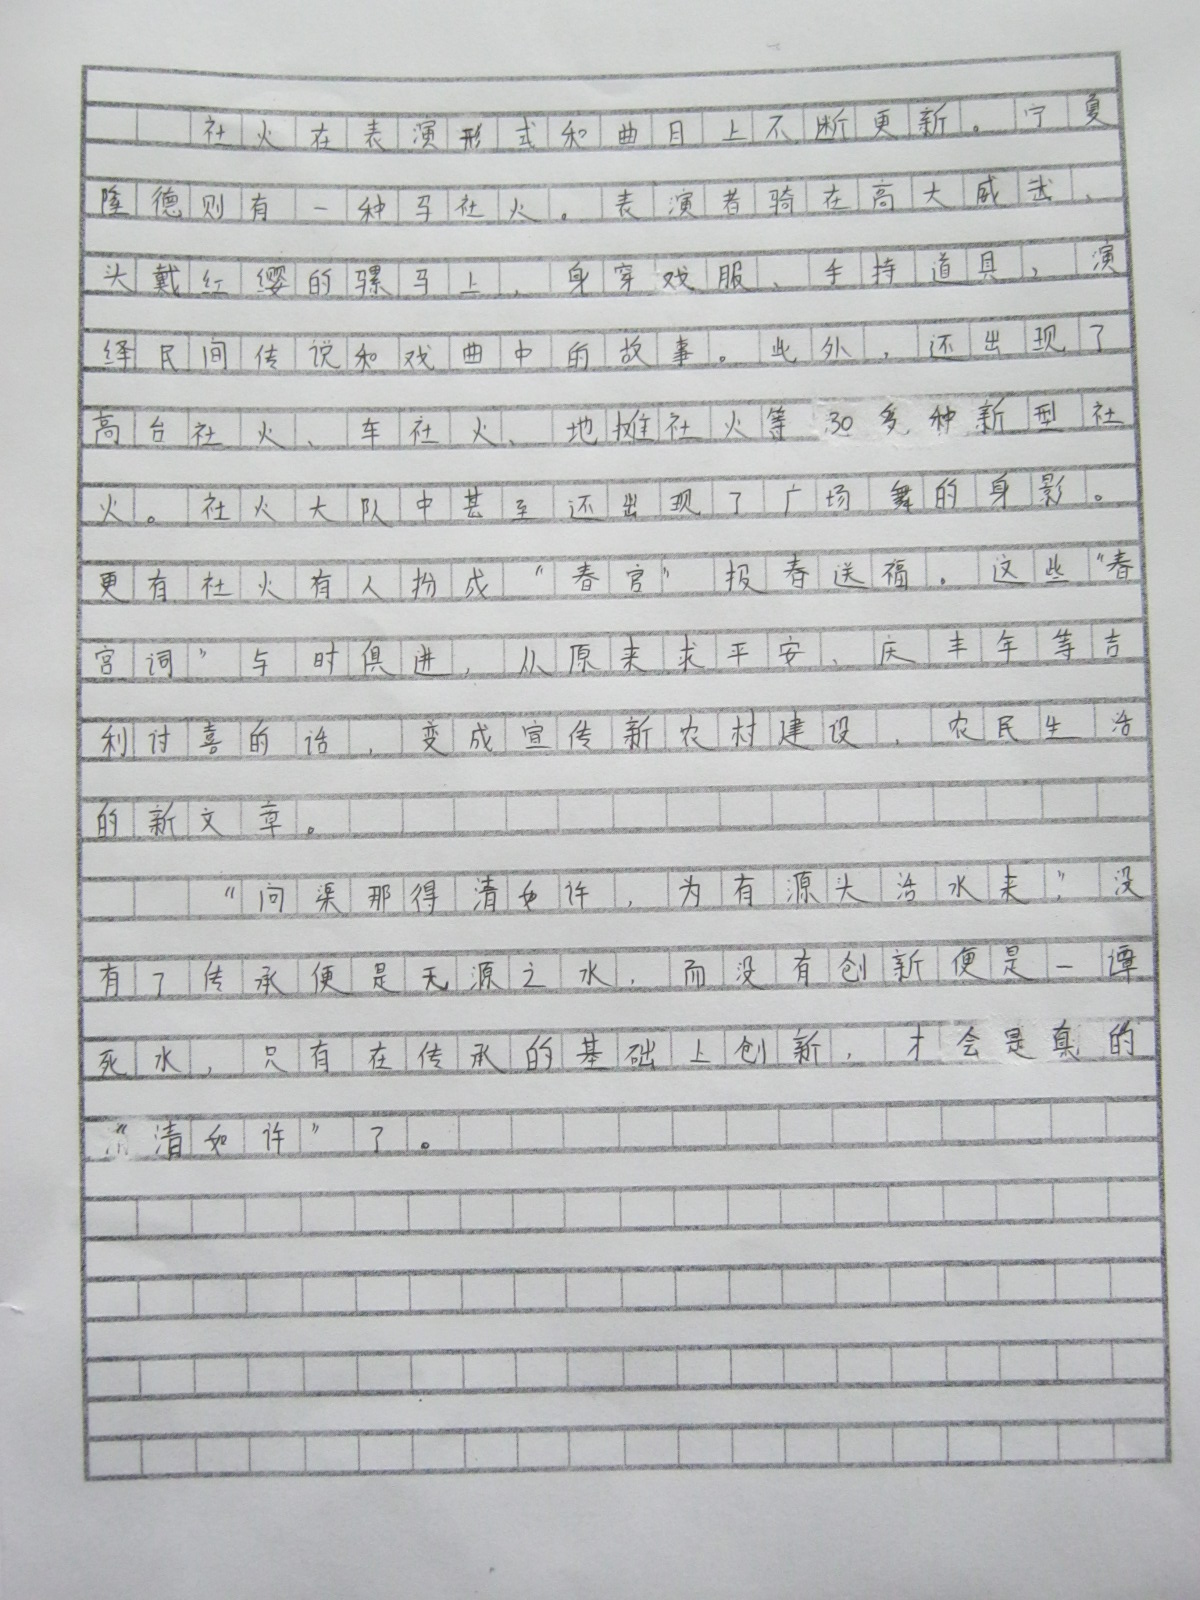 社火在表演形式和曲目上不断更新。宁夏
隆德则有一种马社火。表演者骑在高大威武、
头戴红缨的骡马上,身穿戏服、手持道具,演
绎民间传说和戏曲中的故事。此外,还出现了
高台社火、车社火、地摊社火等30多种新型社
火。社火大队中甚至还出现了广场舞的身影。
更有社火有人扮成“春官”报春送福。这些“春
官词”与时俱进,从原来求平安、庆丰年等吉
利讨喜的话,变成宣传新农村建设,农民生活
的新文章。
“问渠那得清如许,为有源头活水来”,没
有了传承便是无源之水,而没有创新便是一潭
死水,只有在传承的基础上创新,才会是真的
“清如许”了。